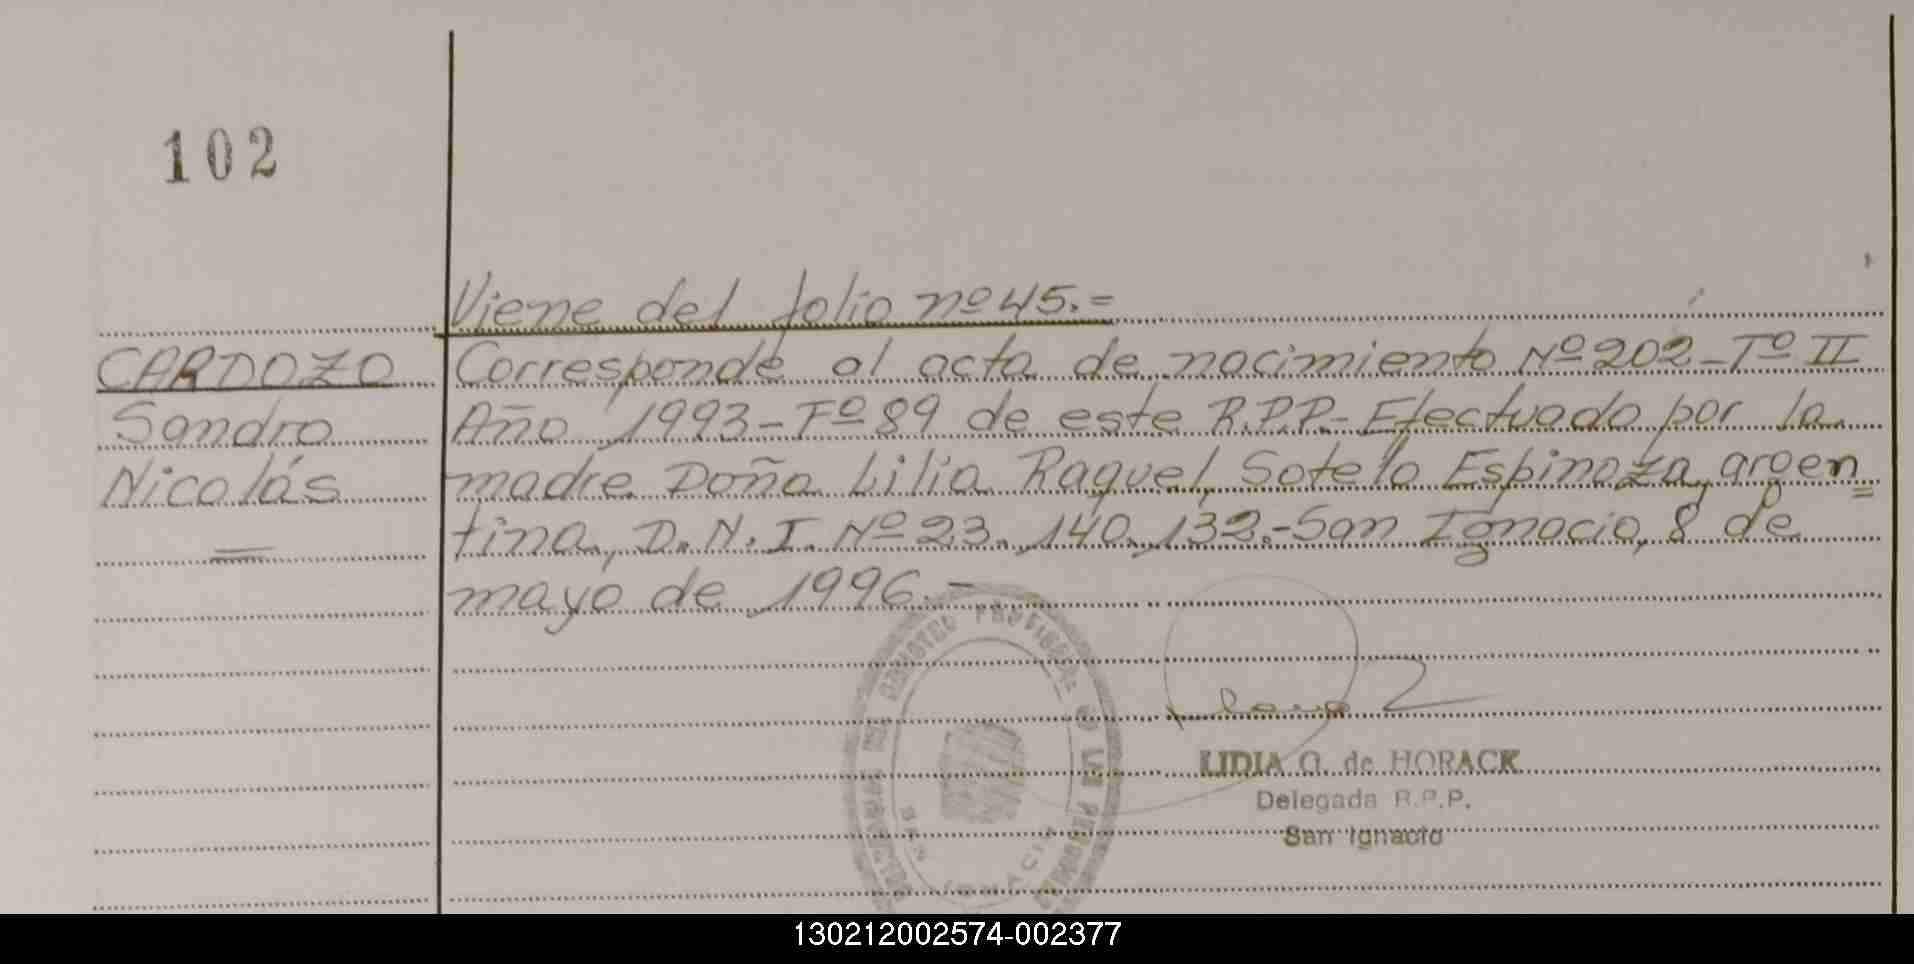 102
Viene del folio nº 45.=
CARDOZO
Sandro
Nicolás
Corresponde al acta de nacimiento Nº 202-Tº II
Año 1993-Fº 89 de este R.P.P.- Efectuado por la
madre Doña Lilia Raquel Sotelo Espinoza, argen=
tina, D.N.I. Nº 23.140.132.-San Ignacio, 8 de
mayo de 1996.-
REGISTRO PROVINCIAL DE LAS PERSONAS
SAN IGNACIO
LIDIA G. de HORACK
Delegada R.P.P.
San Ignacio
130212002574-002377